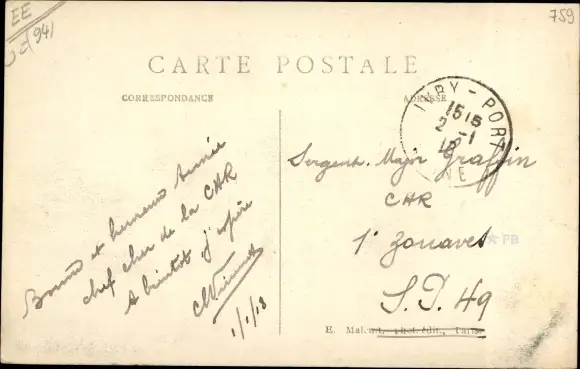 EE
941
759
CARTE POSTALE
CORRESPONDANCE
ADRESSE
Bonne et heureuse Année
chef cher de la CHR
A bientôt j'espère
1/1/18
IVRY-PORT
15 15
2-1
18
Sergent-Major Graffin
CHR
1er Zouaves
S.P. 49
PB
E. Malcuit, Phot. édit., Paris